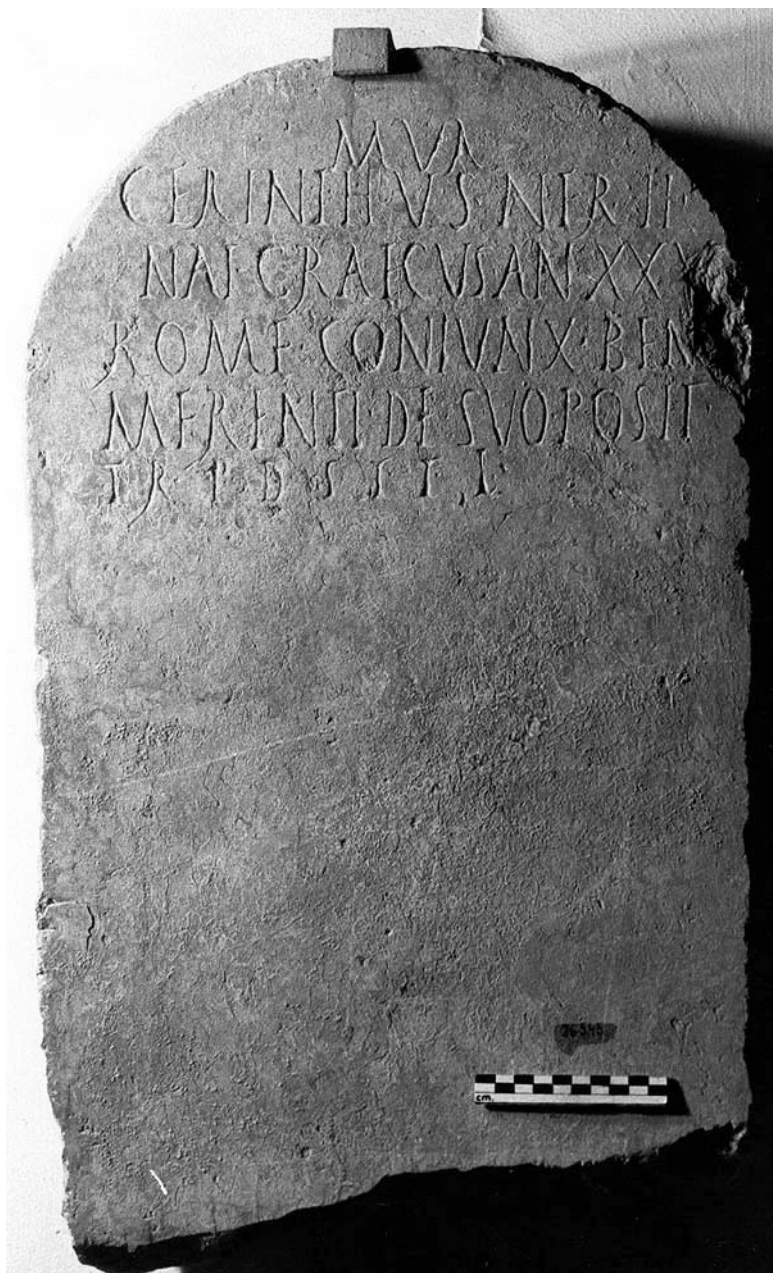 MVA
CERINTHVS·NER·II·
NAT·GRAECVS AN·XXX
ROME·CONIVNX·BEN
MERENTI·DE SVO·POSIT
T·R·P·D·S·S·T·L·
cm.